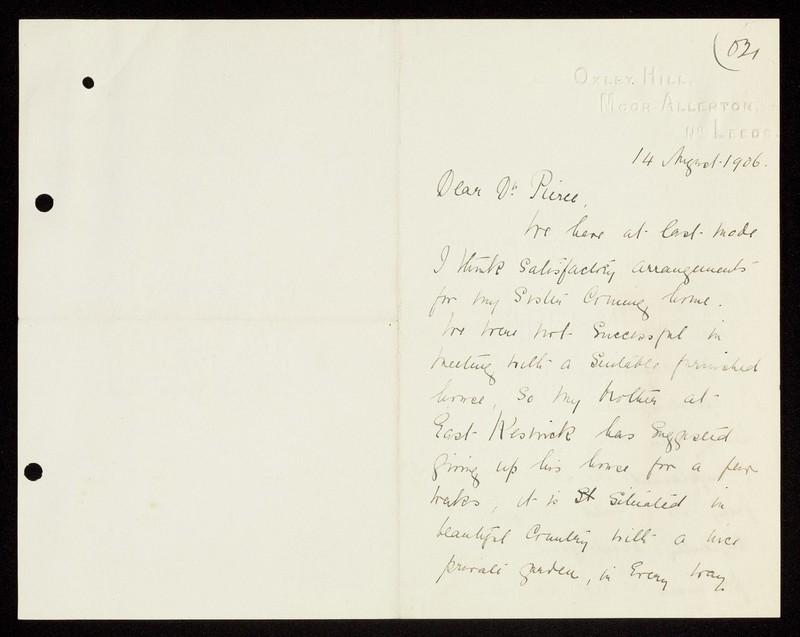 (02,
OXLEY HILL,
MOOR ALLERTON,
NR LEEDS.
14 August. 1906.
Dear Dr Pierce,
We have at last made
I think satisfactory arrangements
for my Sister Coming home.
We were not successful in
meeting with a suitable furnished
house, So my brother at
East Keswick has suggested
giving up his house for a few
weeks, it is St situated in
beautiful Country with a nice
private garden, in Every way